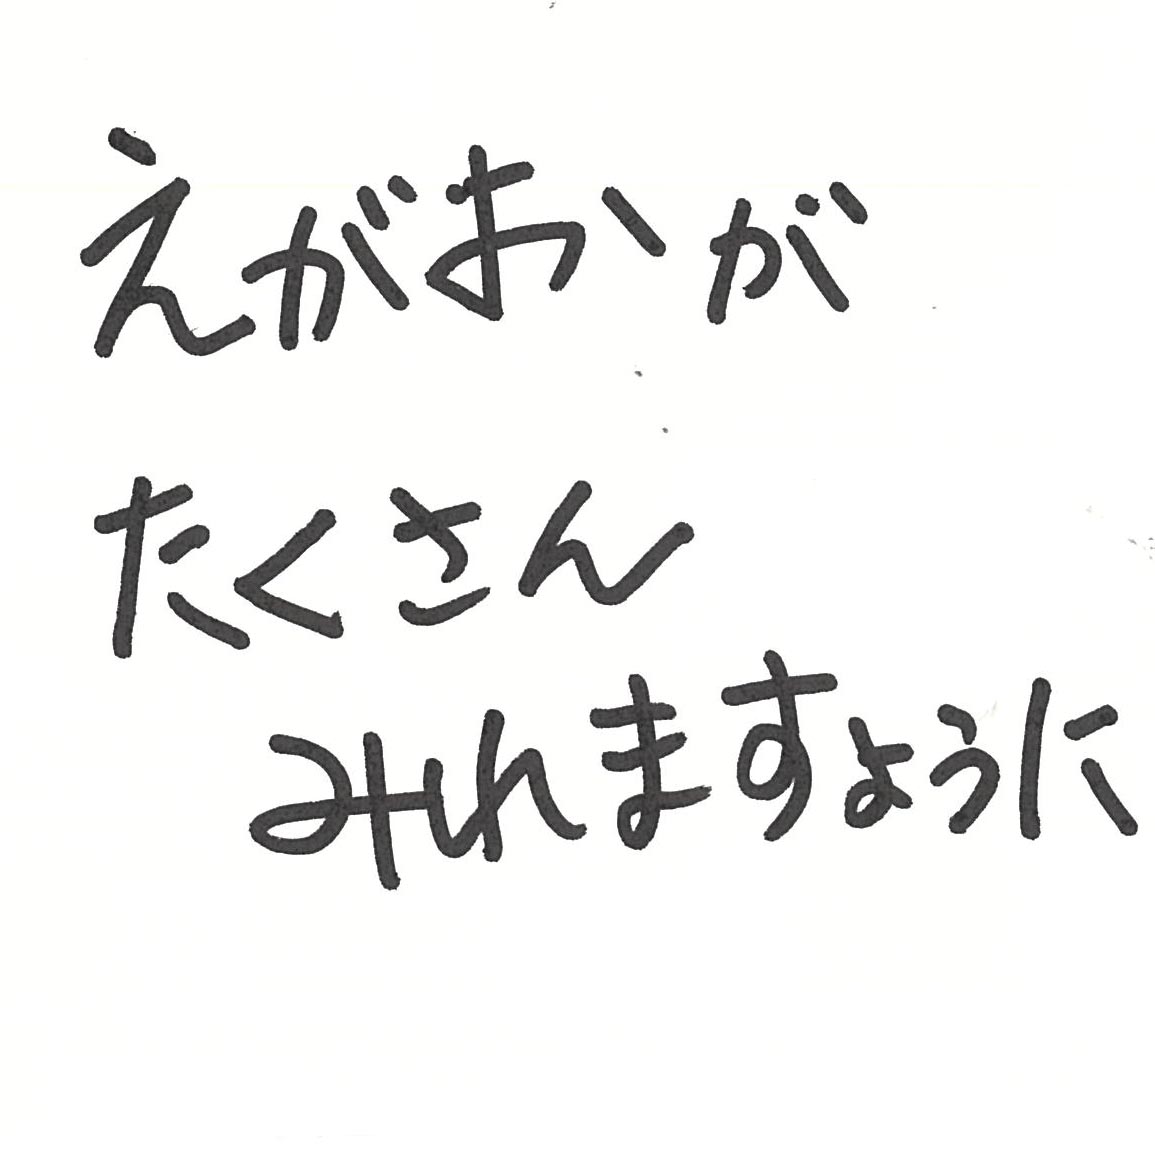 えがおが
たくさん
みれますように